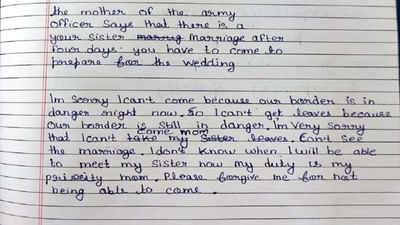 the mother of the army
officer says that there is a
your sister marriage after
four days. you have to come to
prepare for the wedding
Im sorry I can't come because our border is in
danger right now. So I can't get leaves because
our border is still in danger. Im very sorry
come mom
that I can't take my sister leaves. Can't see
the marriage. I don't know when I will be able
to meet my sister now my duty is my
priority mom. Please forgive me for not
being able to come.